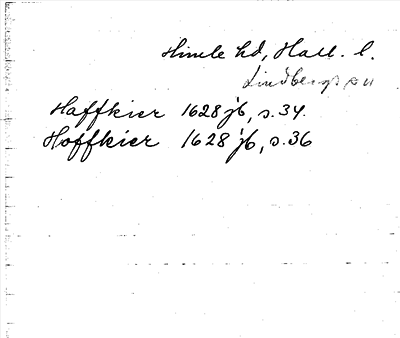 Himle hd, Hall. l.
Lindbergs sn
Haffkier 1628 jb, s. 34.
Hoffkier 1628 jb, s. 36